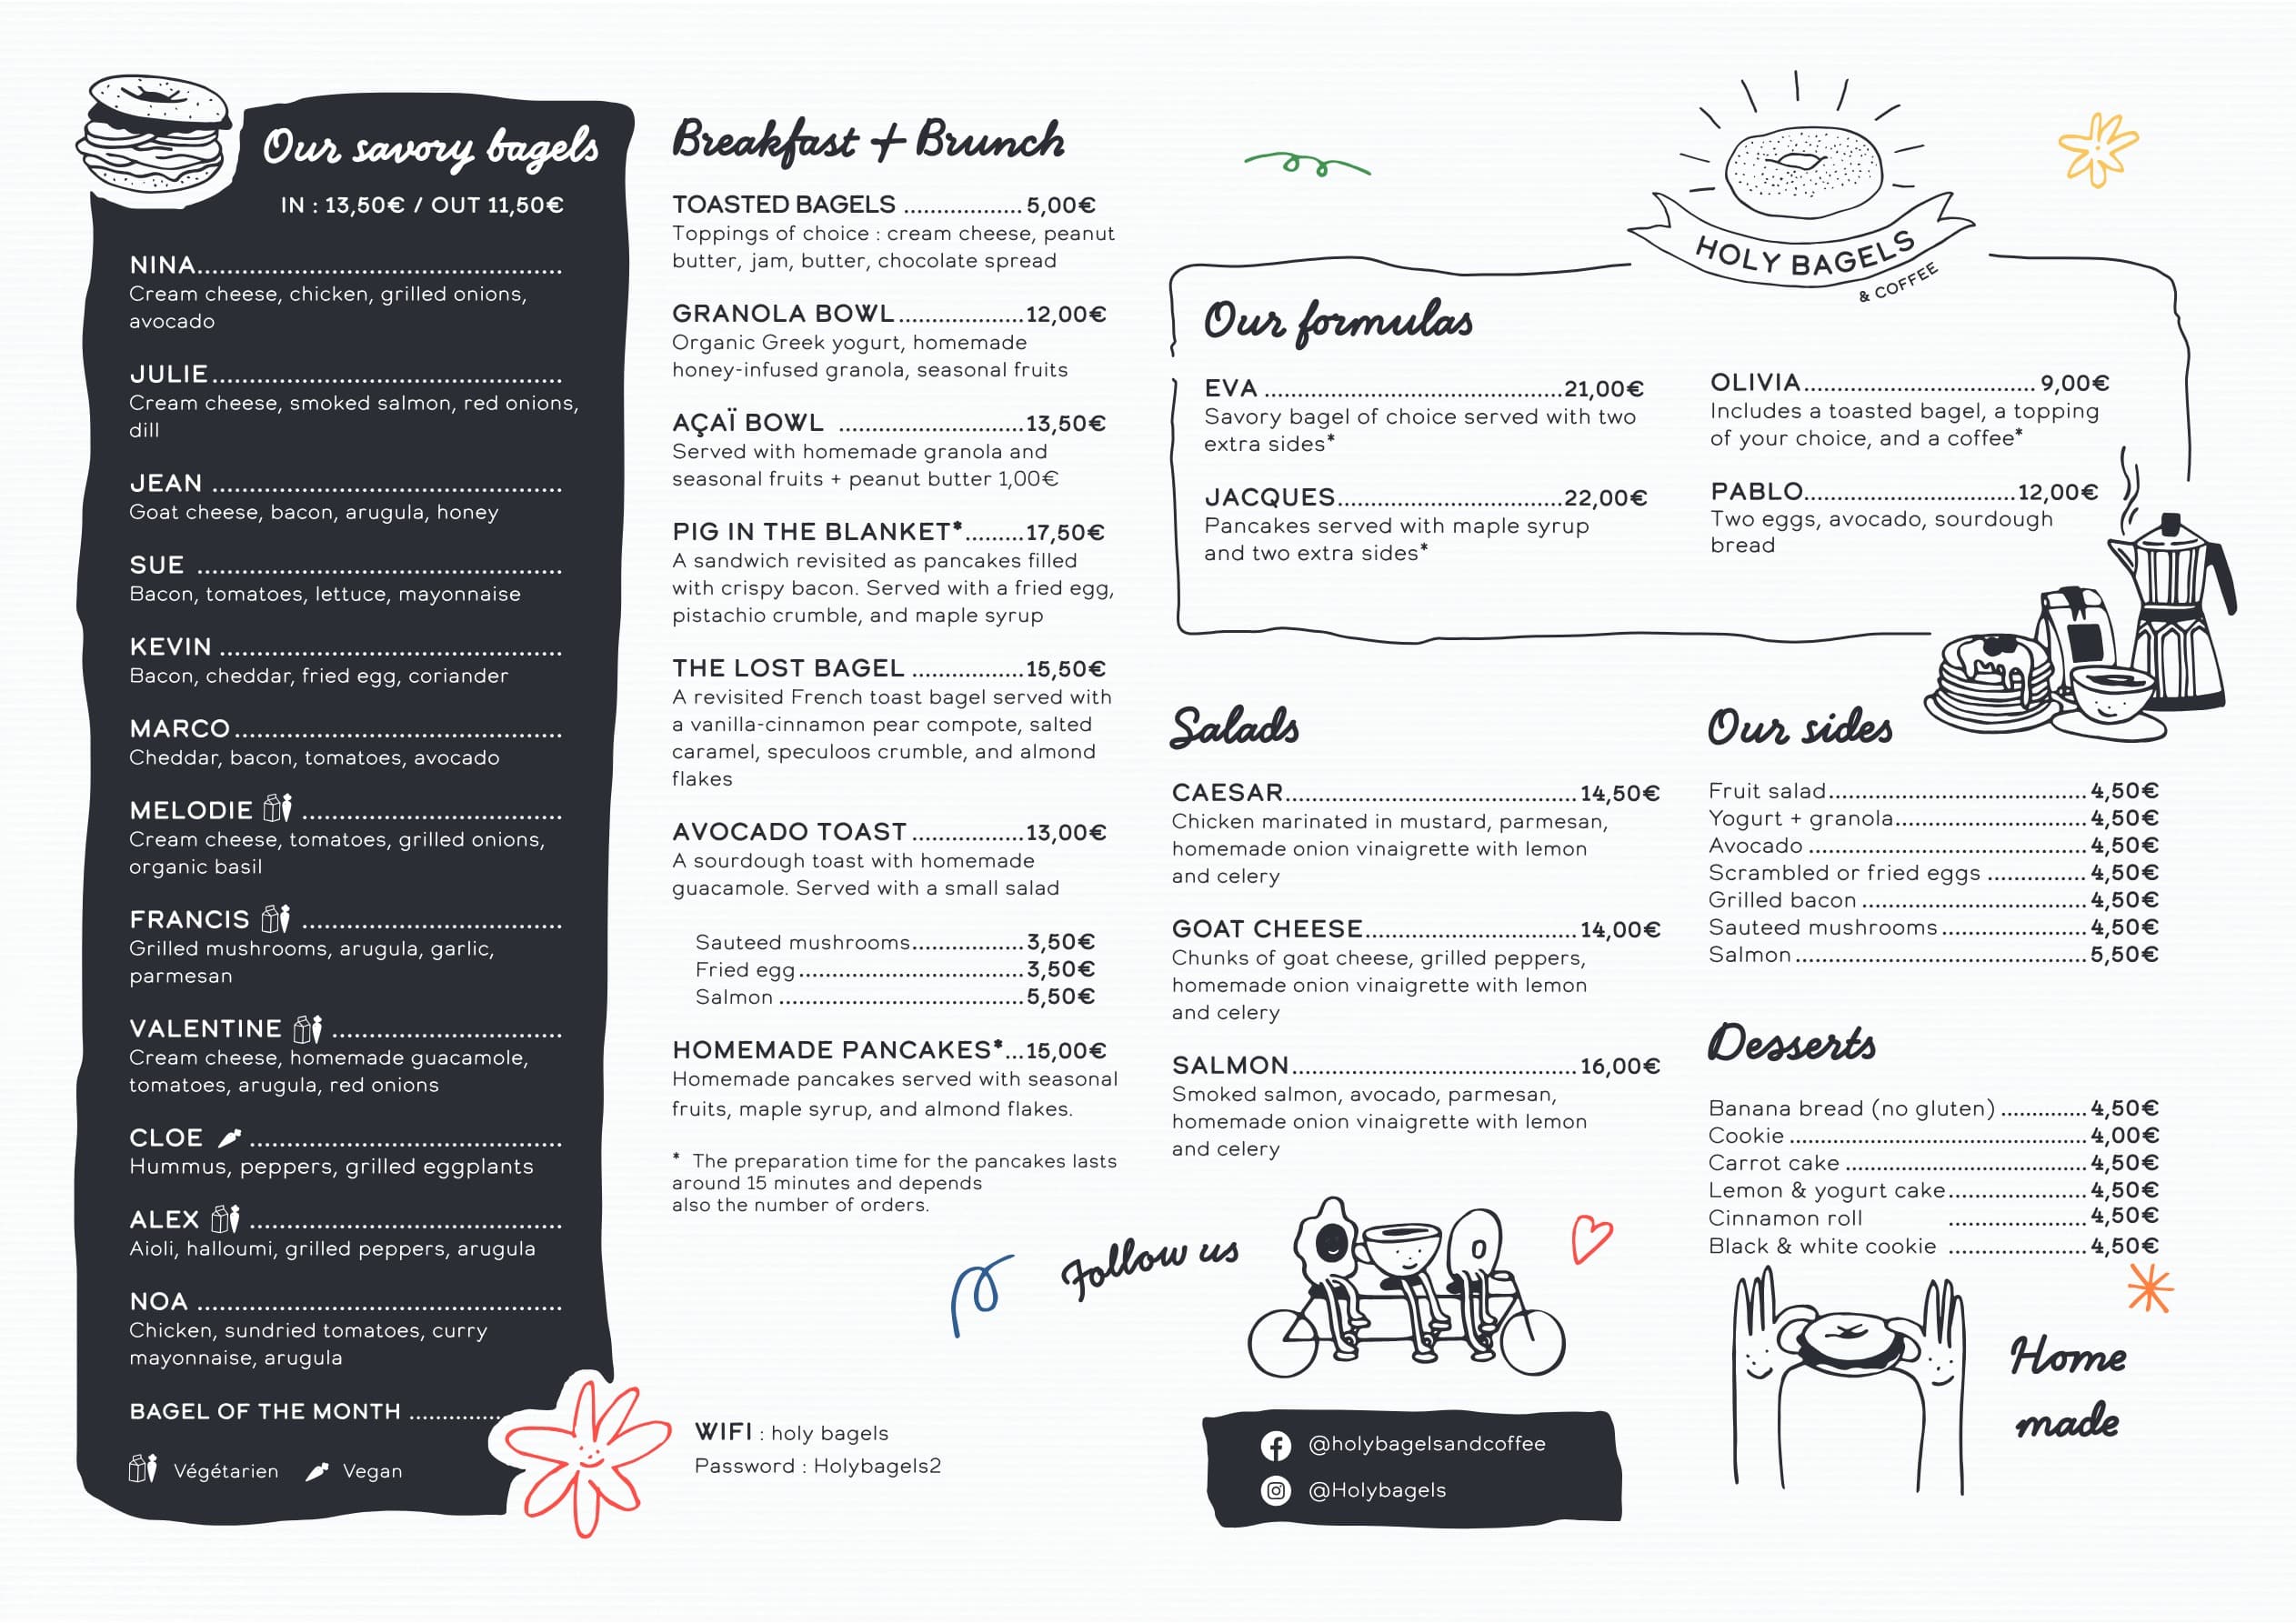 Our savory bagels
IN : 13,50€ / OUT 11,50€
NINA................................................
Cream cheese, chicken, grilled onions,
avocado
JULIE..............................................
Cream cheese, smoked salmon, red onions,
dill
JEAN ..............................................
Goat cheese, bacon, arugula, honey
SUE ................................................
Bacon, tomatoes, lettuce, mayonnaise
KEVIN .............................................
Bacon, cheddar, fried egg, coriander
MARCO...........................................
Cheddar, bacon, tomatoes, avocado
MELODIE ..................................
Cream cheese, tomatoes, grilled onions,
organic basil
FRANCIS ..................................
Grilled mushrooms, arugula, garlic,
parmesan
VALENTINE ..............................
Cream cheese, homemade guacamole,
tomatoes, arugula, red onions
CLOE .........................................
Hummus, peppers, grilled eggplants
ALEX .........................................
Aioli, halloumi, grilled peppers, arugula
NOA ................................................
Chicken, sundried tomatoes, curry
mayonnaise, arugula
BAGEL OF THE MONTH ............
Végétarien Vegan
Breakfast + Brunch
TOASTED BAGELS ................... 5,00€
Toppings of choice : cream cheese, peanut
butter, jam, butter, chocolate spread
GRANOLA BOWL....................12,00€
Organic Greek yogurt, homemade
honey-infused granola, seasonal fruits
AÇAÏ BOWL ..............................13,50€
Served with homemade granola and
seasonal fruits + peanut butter 1,00€
PIG IN THE BLANKET*.........17,50€
A sandwich revisited as pancakes filled
with crispy bacon. Served with a fried egg,
pistachio crumble, and maple syrup
THE LOST BAGEL ..................15,50€
A revisited French toast bagel served with
a vanilla-cinnamon pear compote, salted
caramel, speculoos crumble, and almond
flakes
AVOCADO TOAST ..................13,00€
A sourdough toast with homemade
guacamole. Served with a small salad
Sauteed mushrooms..................3,50€
Fried egg....................................3,50€
Salmon .......................................5,50€
HOMEMADE PANCAKES*...15,00€
Homemade pancakes served with seasonal
fruits, maple syrup, and almond flakes.
* The preparation time for the pancakes lasts
around 15 minutes and depends
also the number of orders.
WIFI : holy bagels
Password : Holybagels2
HOLY BAGELS
& COFFEE
Our formulas
EVA ................................................21,00€
Savory bagel of choice served with two
extra sides*
JACQUES....................................22,00€
Pancakes served with maple syrup
and two extra sides*
OLIVIA..................................... 9,00€
Includes a toasted bagel, a topping
of your choice, and a coffee*
PABLO..................................12,00€
Two eggs, avocado, sourdough
bread
Salads
CAESAR...............................................14,50€
Chicken marinated in mustard, parmesan,
homemade onion vinaigrette with lemon
and celery
GOAT CHEESE..................................14,00€
Chunks of goat cheese, grilled peppers,
homemade onion vinaigrette with lemon
and celery
SALMON..............................................16,00€
Smoked salmon, avocado, parmesan,
homemade onion vinaigrette with lemon
and celery
Our sides
Fruit salad..........................................4,50€
Yogurt + granola...............................4,50€
Avocado .............................................4,50€
Scrambled or fried eggs ................4,50€
Grilled bacon ....................................4,50€
Sauteed mushrooms.......................4,50€
Salmon...............................................5,50€
Desserts
Banana bread (no gluten) ..............4,50€
Cookie ................................................4,00€
Carrot cake .......................................4,50€
Lemon & yogurt cake......................4,50€
Cinnamon roll ......................4,50€
Black & white cookie ......................4,50€
Follow us
@holybagelsandcoffee
@Holybagels
Home
made